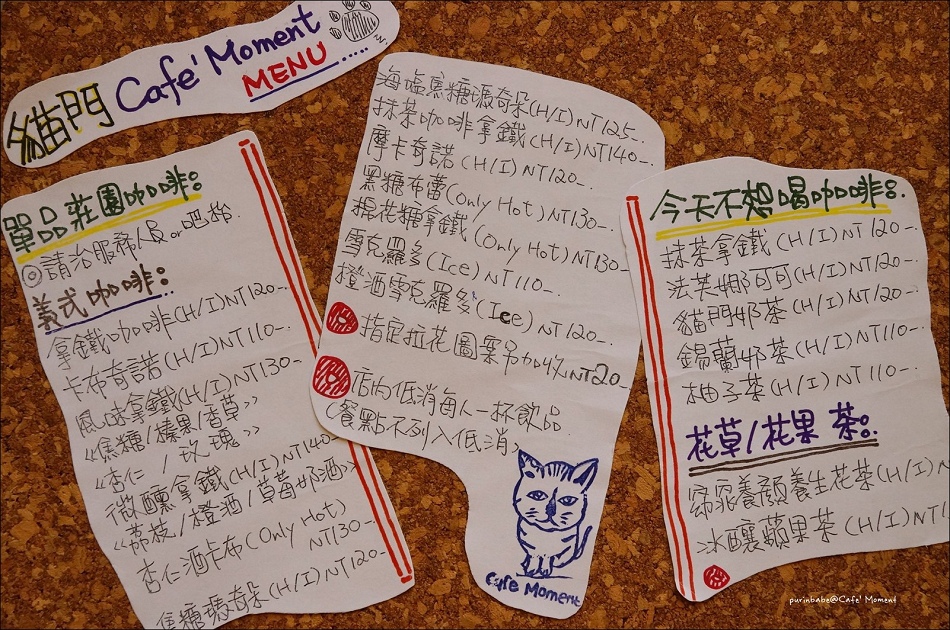 貓門 Cafe' Moment
MENU
單品莊園咖啡:
◎請洽服務人員or吧檯.
義式咖啡:
拿鐵咖啡(H/I)NT120-.
卡布奇諾(H/I)NT110-.
風味拿鐵(H/I)NT130-
《焦糖/榛果/香草》
《杏仁/玫瑰》
微醺拿鐵(H/I)NT140-
《荔枝/橙酒/草莓奶酒》
杏仁酒卡布(Only Hot)
NT130-
焦糖瑪奇朵(H/I)NT120-
海塩焦糖瑪奇朵(H/I)NT125.
抹茶咖啡拿鐵(H/I)NT140-.
摩卡奇諾(H/I)NT120-.
黑糖布蕾(Only Hot)NT130-.
棉花糖拿鐵(Only Hot)NT130-
雪克羅多(Ice)NT110-.
橙酒雪克羅多(Ice)NT120-.
指定拉花圖案另加收NT20-
店內低消每人一杯飲品
(餐點不列入低消)
Cafe Moment
今天不想喝咖啡:.
抹茶拿鐵(H/I)NT120-.
法芙娜可可(H/I)NT120-.
貓門奶茶(H/I)NT120-
錫蘭奶茶(H/I)NT110-
柚子茶(H/I)NT110-.
花草/花果茶:.
窈窕養顏養生花茶(H/I)N
冰釀蘋果茶(H/I)NT1
purinbabe@Cafe' Moment